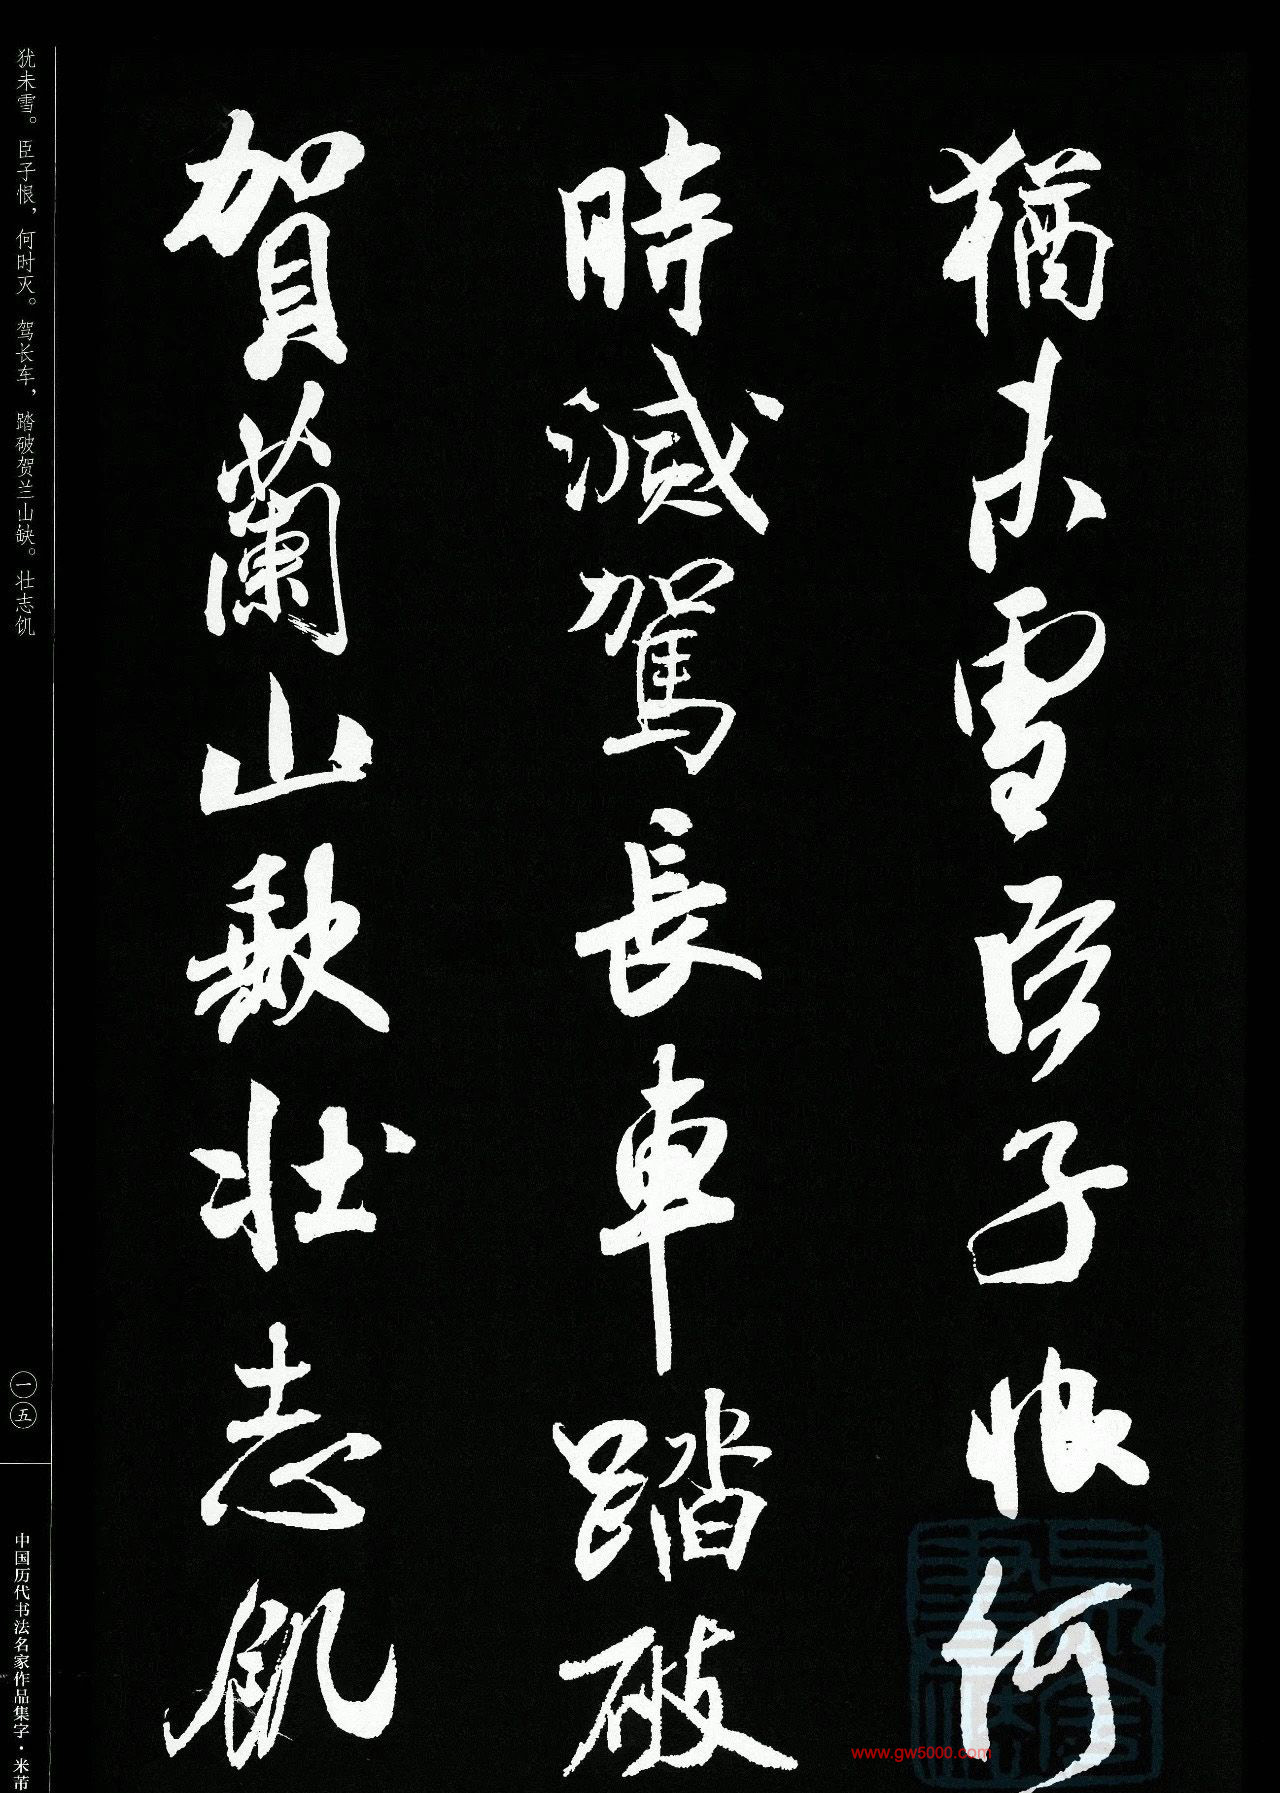 猶未雪臣子恨何
時滅駕長車踏破
賀蘭山缺壯志飢
犹未雪。臣子恨，何时灭。驾长车，踏破贺兰山缺。壮志饥
一五
中国历代书法名家作品集字·米芾
www.gw5000.com